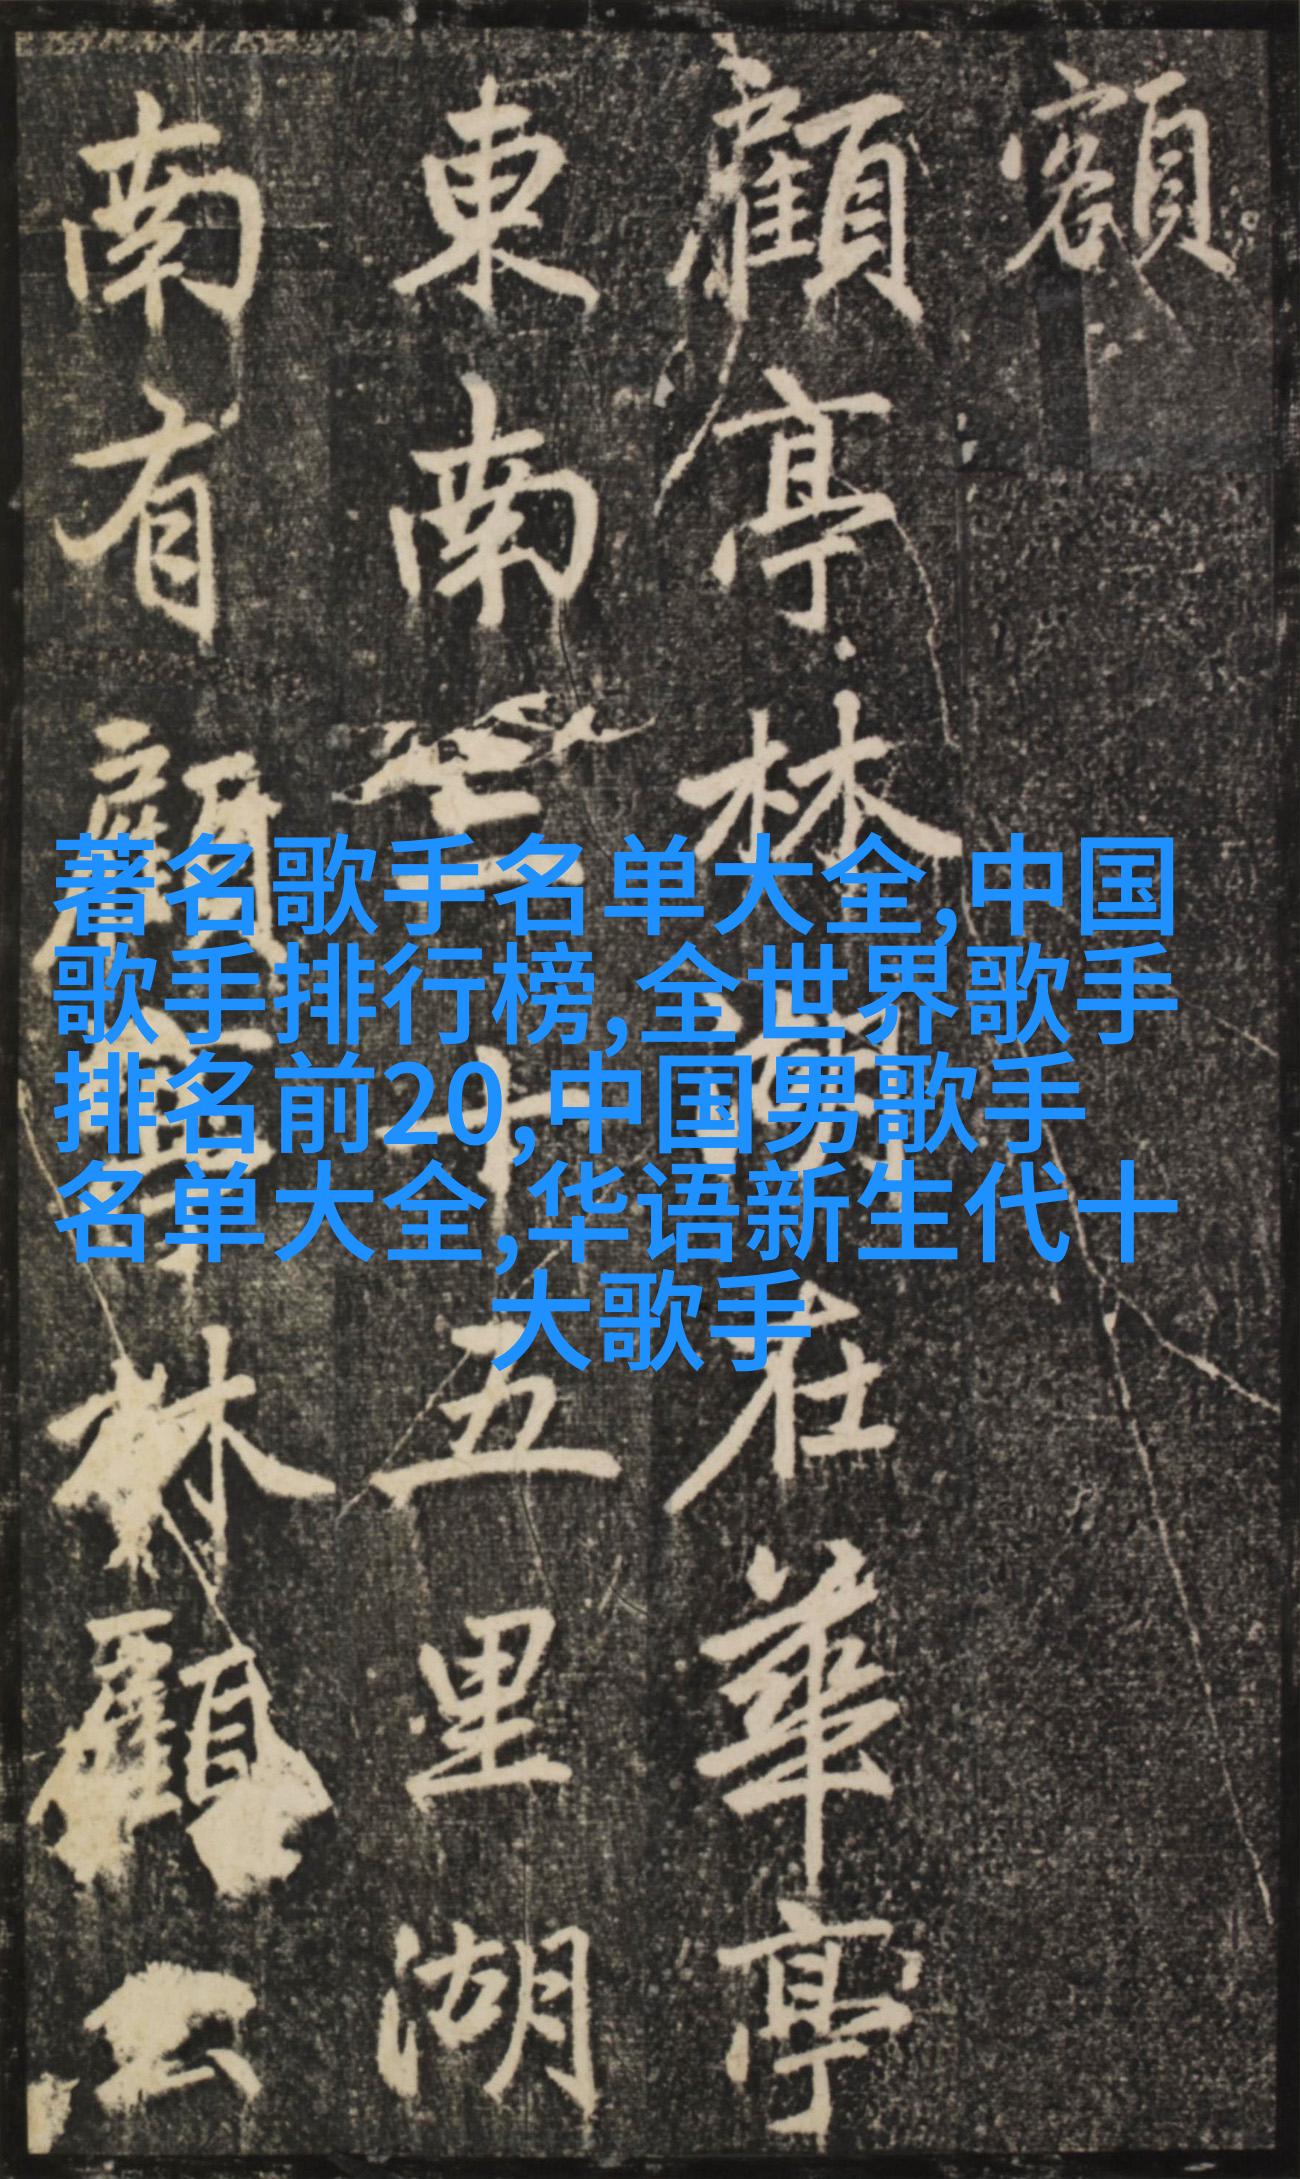 額
顧亭林湖在華亭
東南三十五里湖
南有顧亭林顧公
著名歌手名单大全,中国
歌手排行榜,全世界歌手
排名前20,中国男歌手
名单大全,华语新生代十
大歌手